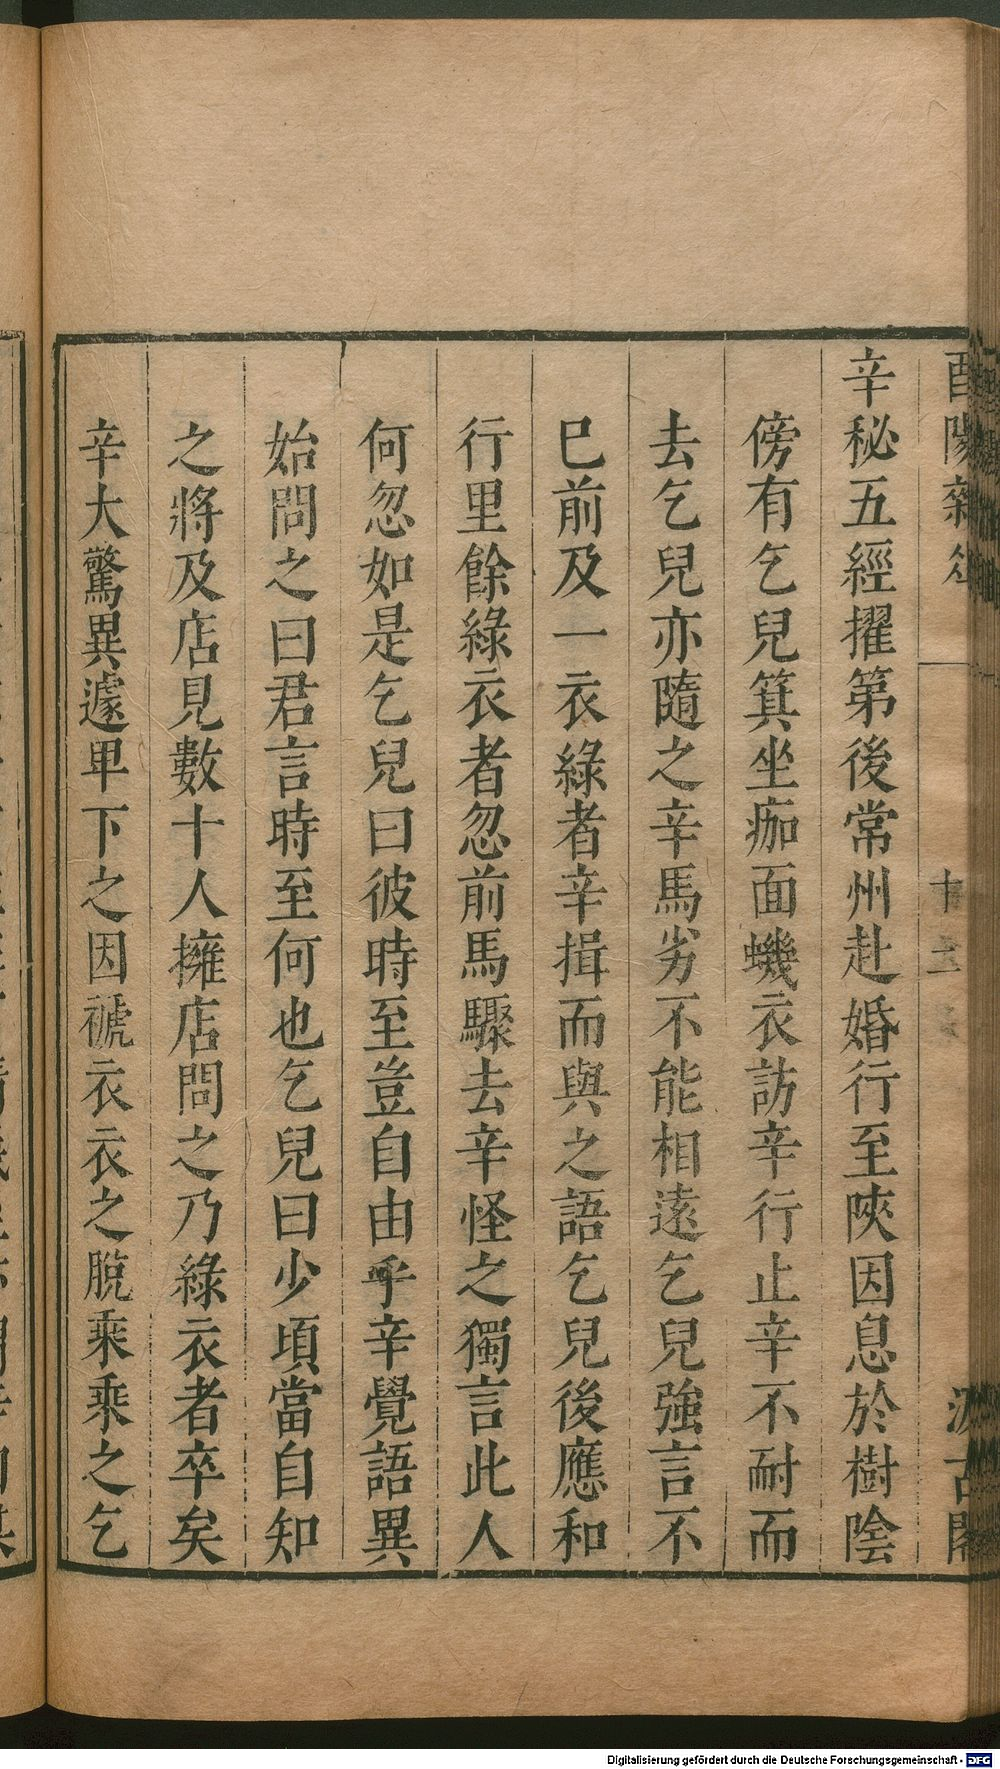 辛秘五經擢第後常州赴婚行至陝因息於樹陰
傍有乞兒箕坐痂面蟣衣訪辛行止辛不耐而
去乞兒亦隨之辛馬劣不能相遠乞兒強言不
已前及一衣綠者辛揖而與之語乞兒後應和
行里餘綠衣者忽前馬驟去辛怪之獨言此人
何忽如是乞兒曰彼時至豈自由乎辛覺語異
始問之曰君言時至何也乞兒曰少頃當自知
之將及店見數十人擁店問之乃綠衣者卒矣
辛大驚異遽卑下之因褫衣衣之脫乘乘之乞
Digitalisierung gefördert durch die Deutsche Forschungsgemeinschaft - DFG